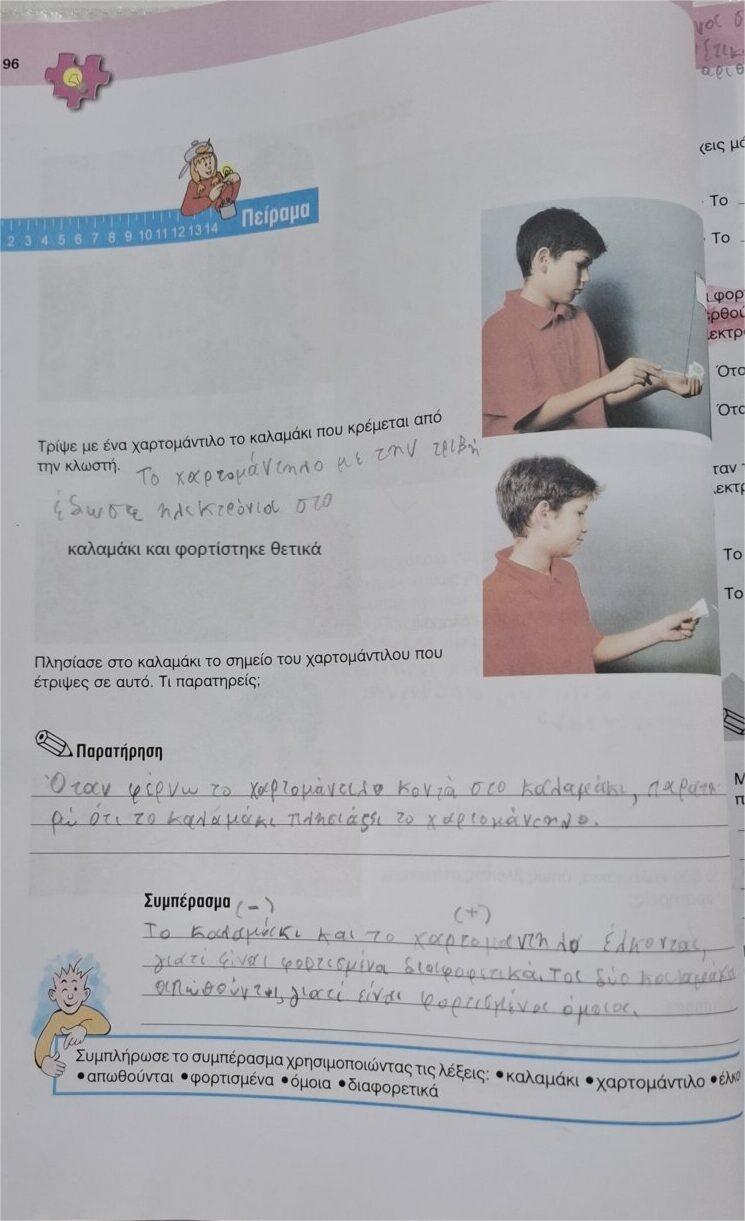 96
Πείραμα
2 3 4 5 6 7 8 9 10 11 12 13 14
Τρίψε με ένα χαρτομάντιλο το καλαμάκι που κρέμεται από
την κλωστή. Το χαρτομάντηλο με την τριβή
έδωσε ηλεκτρόνια στο
καλαμάκι και φορτίστηκε θετικά
Πλησίασε στο καλαμάκι το σημείο του χαρτομάντιλου που
έτριψες σε αυτό. Τι παρατηρείς;
Παρατήρηση
Όταν φέρνω το χαρτομάντιλο κοντά στο καλαμάκι, παρατη-
ρώ ότι το καλαμάκι πλησιάζει το χαρτομάντηλο.
Συμπέρασμα
(-) (+)
Το καλαμάκι και το χαρτομάντηλο έλκονται,
γιατί είναι φορτισμένα διαφορετικά. Τα δύο καλαμάκια
απωθούνται, γιατί είναι φορτισμένα όμοια.
Συμπλήρωσε το συμπέρασμα χρησιμοποιώντας τις λέξεις: •καλαμάκι •χαρτομάντιλο •έλκο
•απωθούνται •φορτισμένα •όμοια •διαφορετικά
Το
Το
Ότα
Ότα
Το
Το